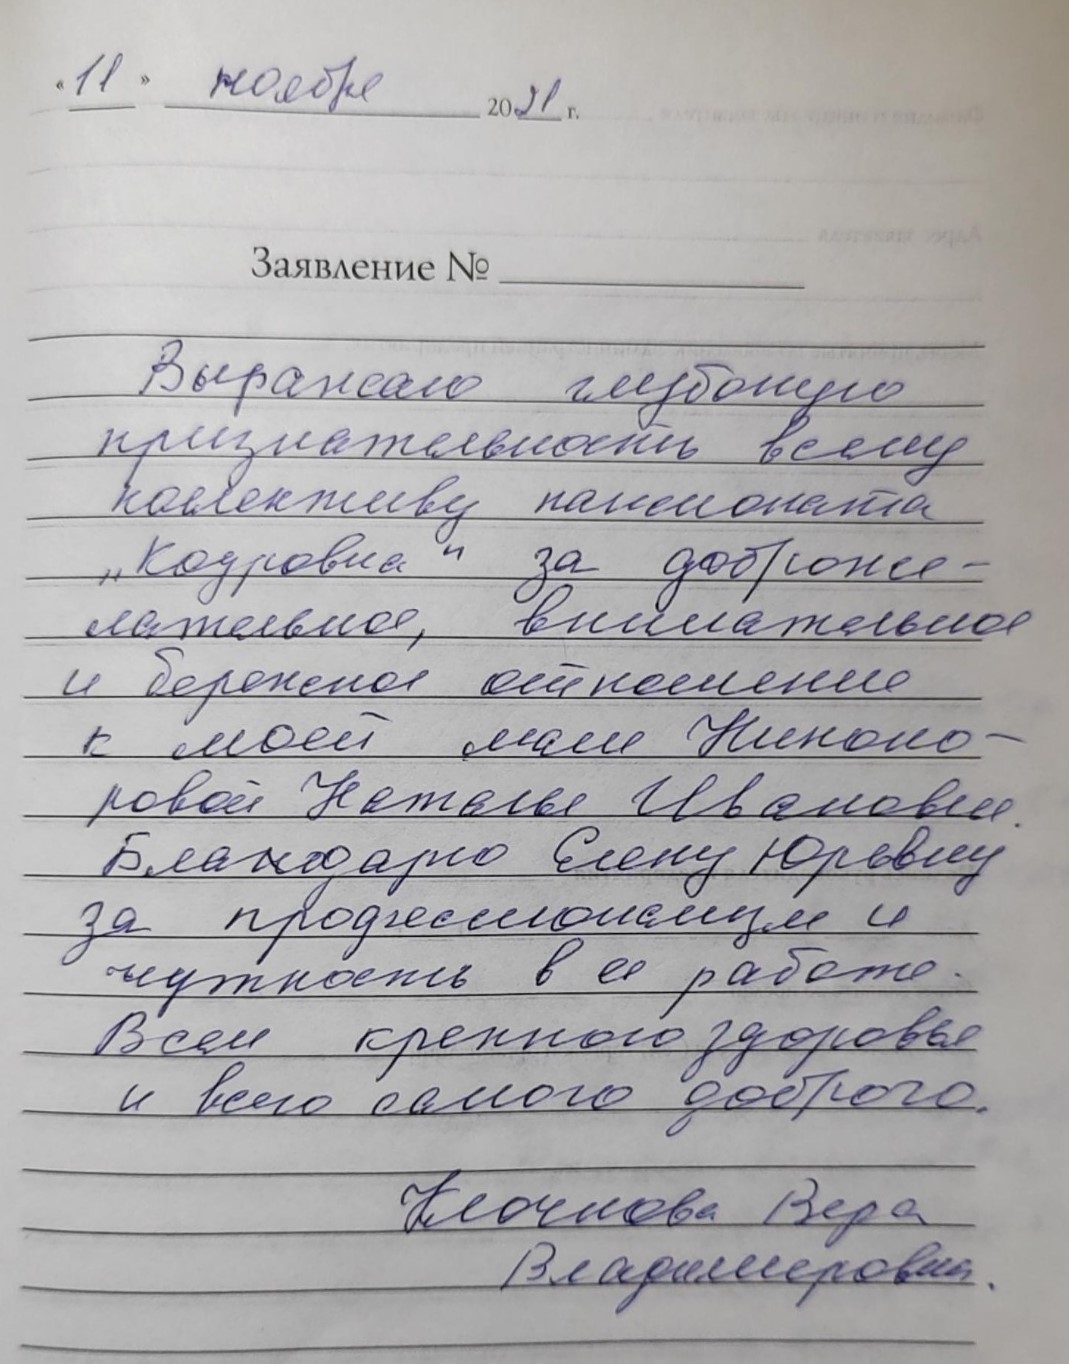 « 11 » ноября 2021 г.
Заявление №
Выражаю глубокую
признательность всему
коллективу пансионата
„Кодровка" за доброже-
лательное, внимательное
и бережное отношение
к моей маме Никоно-
ровой Наталье Ивановне.
Благодарю Елену Юрьевну
за профессионализм и
чуткость в ее работе.
Всем крепкого здоровья
и всего самого доброго.
Клочкова Вера
Владимировна.